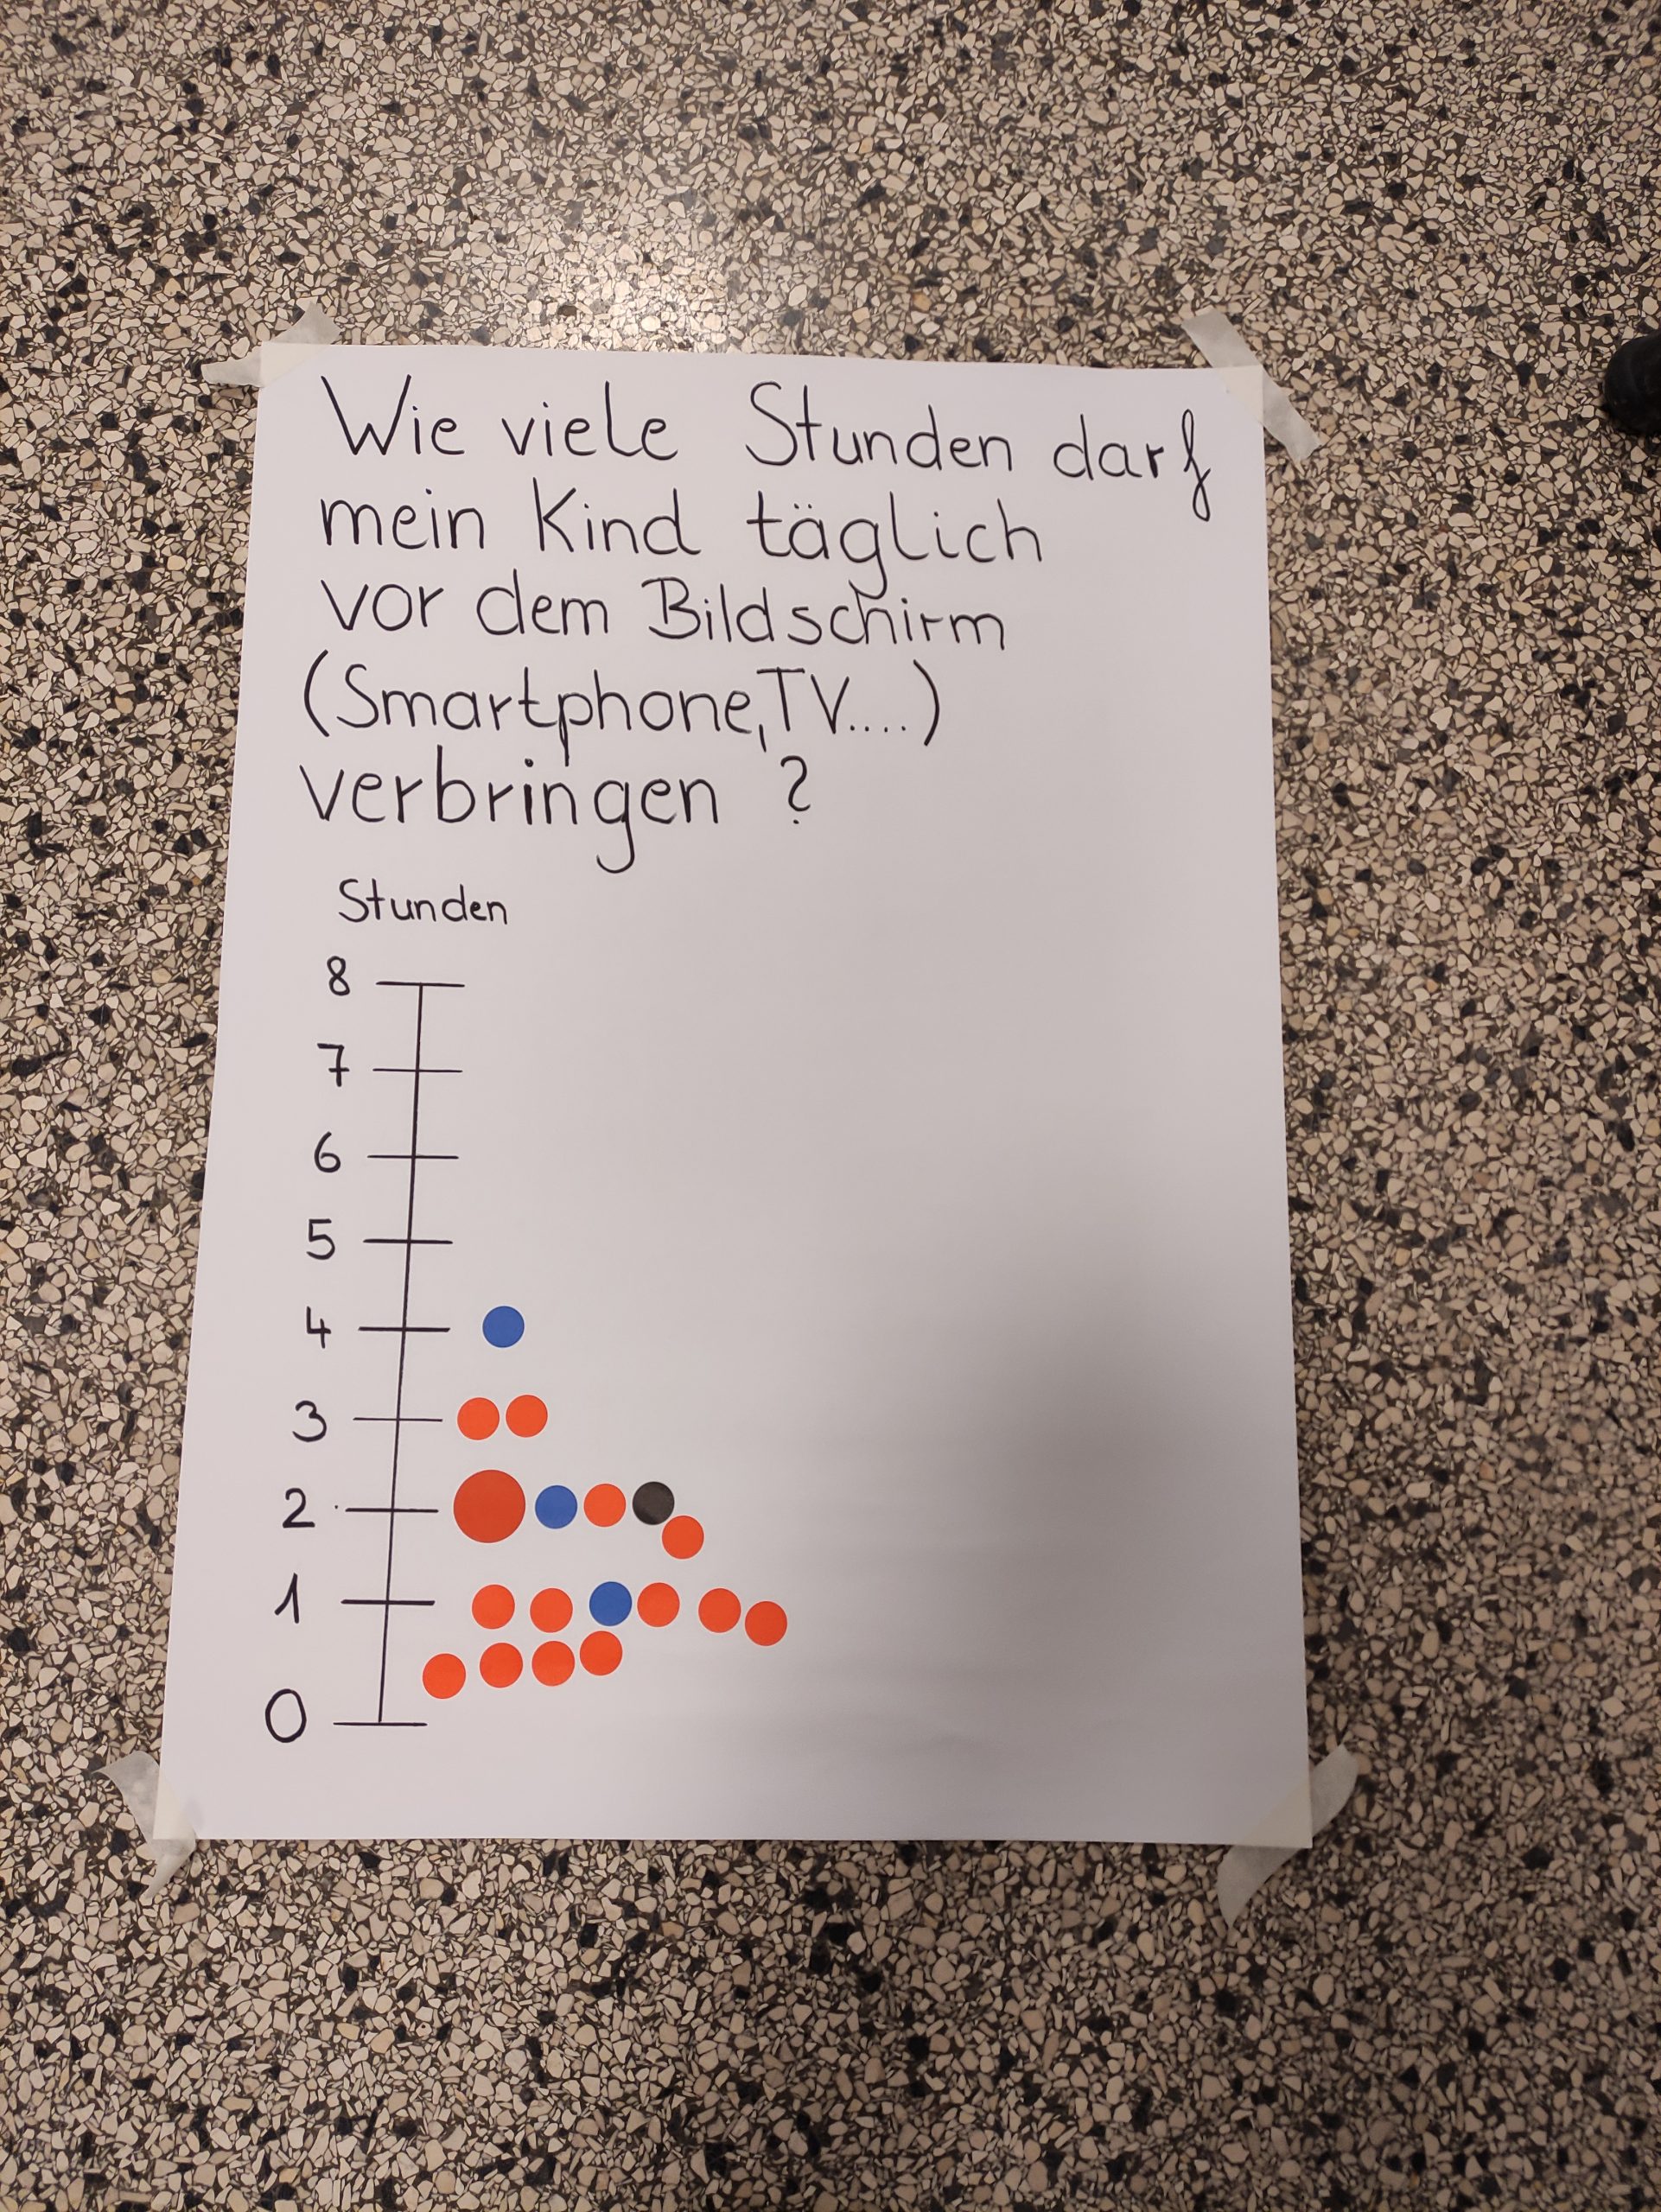 Wie viele Stunden darf
mein Kind täglich
vor dem Bildschirm
(Smartphone, TV....)
verbringen ?
Stunden
8
7
6
5
4
3
2
1
0